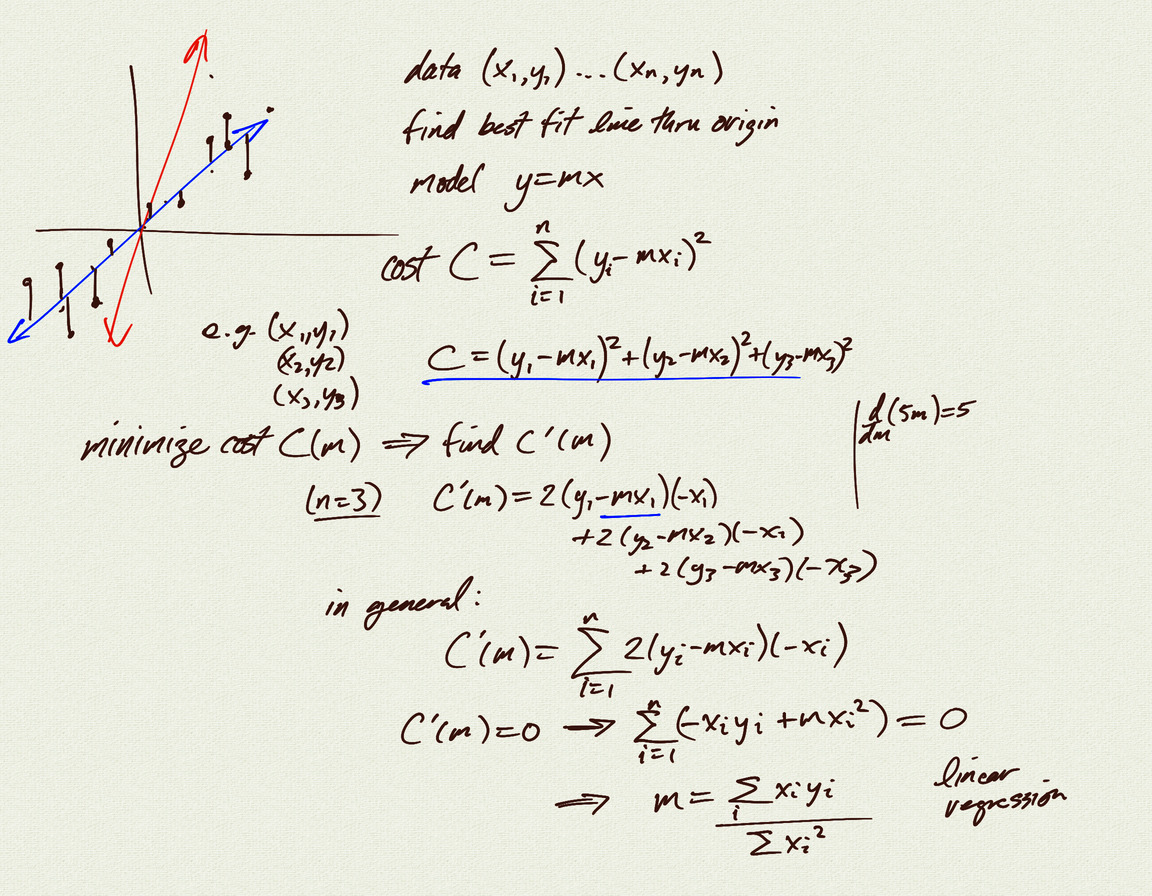 data (x₁,y₁) ... (xₙ,yₙ)
find best fit line thru origin
model y=mx
cost C = ∑ᵢ₌₁ⁿ (yᵢ-mxᵢ)²
e.g. (x₁,y₁)
(x₂,y₂)
(x₃,y₃)
C = (y₁-mx₁)²+(y₂-mx₂)²+(y₃-mx₃)²
minimize cost C(m) ⟹ find C'(m)
d/dm (5m)=5
(n=3) C'(m)=2(y₁-mx₁)(-x₁)
+2(y₂-mx₂)(-x₂)
+2(y₃-mx₃)(-x₃)
in general:
C'(m)= ∑ᵢ₌₁ⁿ 2(yᵢ-mxᵢ)(-xᵢ)
C'(m)=0 → ∑ᵢ₌₁ⁿ (-xᵢyᵢ+mxᵢ²) = 0
⟹ m = ∑ᵢ xᵢyᵢ / ∑xᵢ²
linear
regression